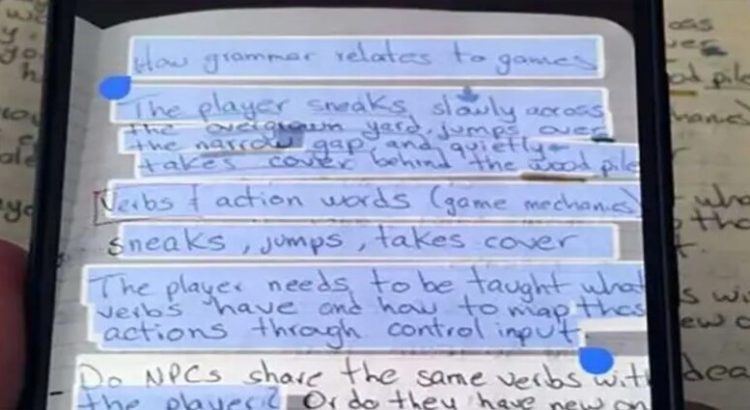 How grammar relates to games
The player sneaks slowly across
the overgrown yard, jumps over
the narrow gap, and quietly
takes cover behind the wood pile
Verbs & action words (game mechanics)
sneaks, jumps, takes cover
The player needs to be taught what
verbs have and how to map thos
actions through control input.
Do NPCs share the same verbs with
the player? Or do they have new on